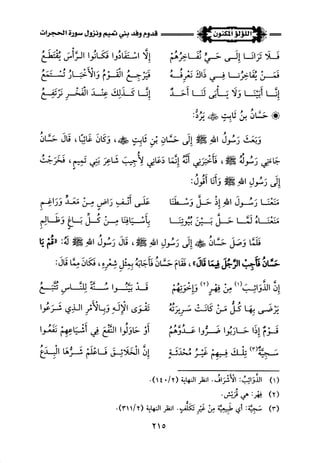 قدوم وفد بني تميم ونزول سورة الحجرات
اللؤلؤ المكنون
فَلَا تَرَانَا إِلَى حَيٍّ نُفَاخِرُهُمْ إِلَّا اسْتَفَادُوا فَكَانُوا الرَّأْسَ يُقْتَطَعُ
فَمَنْ يُفَاخِرُنَا فِي ذَاكَ نَعْرِفُهُ فَيَرْجِعُ الْقَوْمُ وَالْأَخْبَارُ تُسْتَمَعُ
إِنَّا أَبَيْنَا وَلَا يَأْبَى لَنَا أَحَدٌ إِنَّا كَذَلِكَ عِنْدَ الْفَخْرِ نَرْتَفِعُ
حَسَّانُ بْنُ ثَابِتٍ ﷺ يَرُدُّ:
وَبَعَثَ رَسُولُ اللهِ ﷺ إِلَى حَسَّانِ بْنِ ثَابِتٍ، وَكَانَ غَائِبًا، قَالَ حَسَّانُ
جَاءَنِي رَسُولُهُ ﷺ، فَأَخْبَرَنِي أَنَّهُ إِنَّمَا دَعَانِي لِأُجِيبَ شَاعِرَ بَنِي تَمِيمٍ، فَخَرَجْتُ
إِلَى رَسُولِ اللهِ ﷺ وَأَنَا أَقُولُ:
مَنَعْنَا رَسُولَ اللهِ إِذْ حَلَّ وَسْطَنَا عَلَى أَنْفِ رَاضٍ مِنْ مَعَدٍّ وَرَاغِمِ
مَنَعْنَاهُ لَمَّا حَلَّ بَيْنَ بُيُوتِنَا بِأَسْيَافِنَا مِنْ كُلِّ بَاغٍ وَظَالِمِ
فَلَمَّا وَصَلَ حَسَّانُ إِلَى رَسُولِ اللهِ ﷺ، قَالَ رَسُولُ اللهِ ﷺ لَهُ: «قُمْ يَا
حَسَّانُ فَأَجِبِ الرَّجُلَ فِيمَا قَالَ»، فَقَامَ حَسَّانُ فَأَجَابَهُ بِمِثْلِ شِعْرِهِ، فَكَانَ مِمَّا قَالَ:
إِنَّ الذَّوَائِبَ(١) مِنْ فِهْرٍ(٢) وَإِخْوَتِهِمْ قَدْ بَيَّنُوا سُنَّةً لِلنَّاسِ تُتَّبَعُ
يَرْضَى بِهَا كُلُّ مَنْ كَانَتْ سَرِيرَتُهُ تَقْوَى الْإِلَهِ وَبِالْأَمْرِ الَّذِي شَرَعُوا
قَوْمٌ إِذَا حَارَبُوا ضَرُّوا عَدُوَّهُمُ أَوْ حَاوَلُوا النَّفْعَ فِي أَشْيَاعِهِمْ نَفَعُوا
سَجِيَّةٌ(٣) تِلْكَ فِيهِمْ غَيْرُ مُحْدَثَةٍ إِنَّ الْخَلَائِقَ فَاعْلَمْ شَرُّهَا الْبِدَعُ
(١) الذَّوَائِبُ: الْأَشْرَافُ. انظر النهاية (١٤٠/٢).
(٢) فِهْر: هي قُرَيْش.
(٣) سَجِيَّةٌ: أي طَبِيعِيَّةٌ مِنْ غَيْرِ تَكَلُّفٍ. انظر النهاية (٣١١/٢).
٢١٥